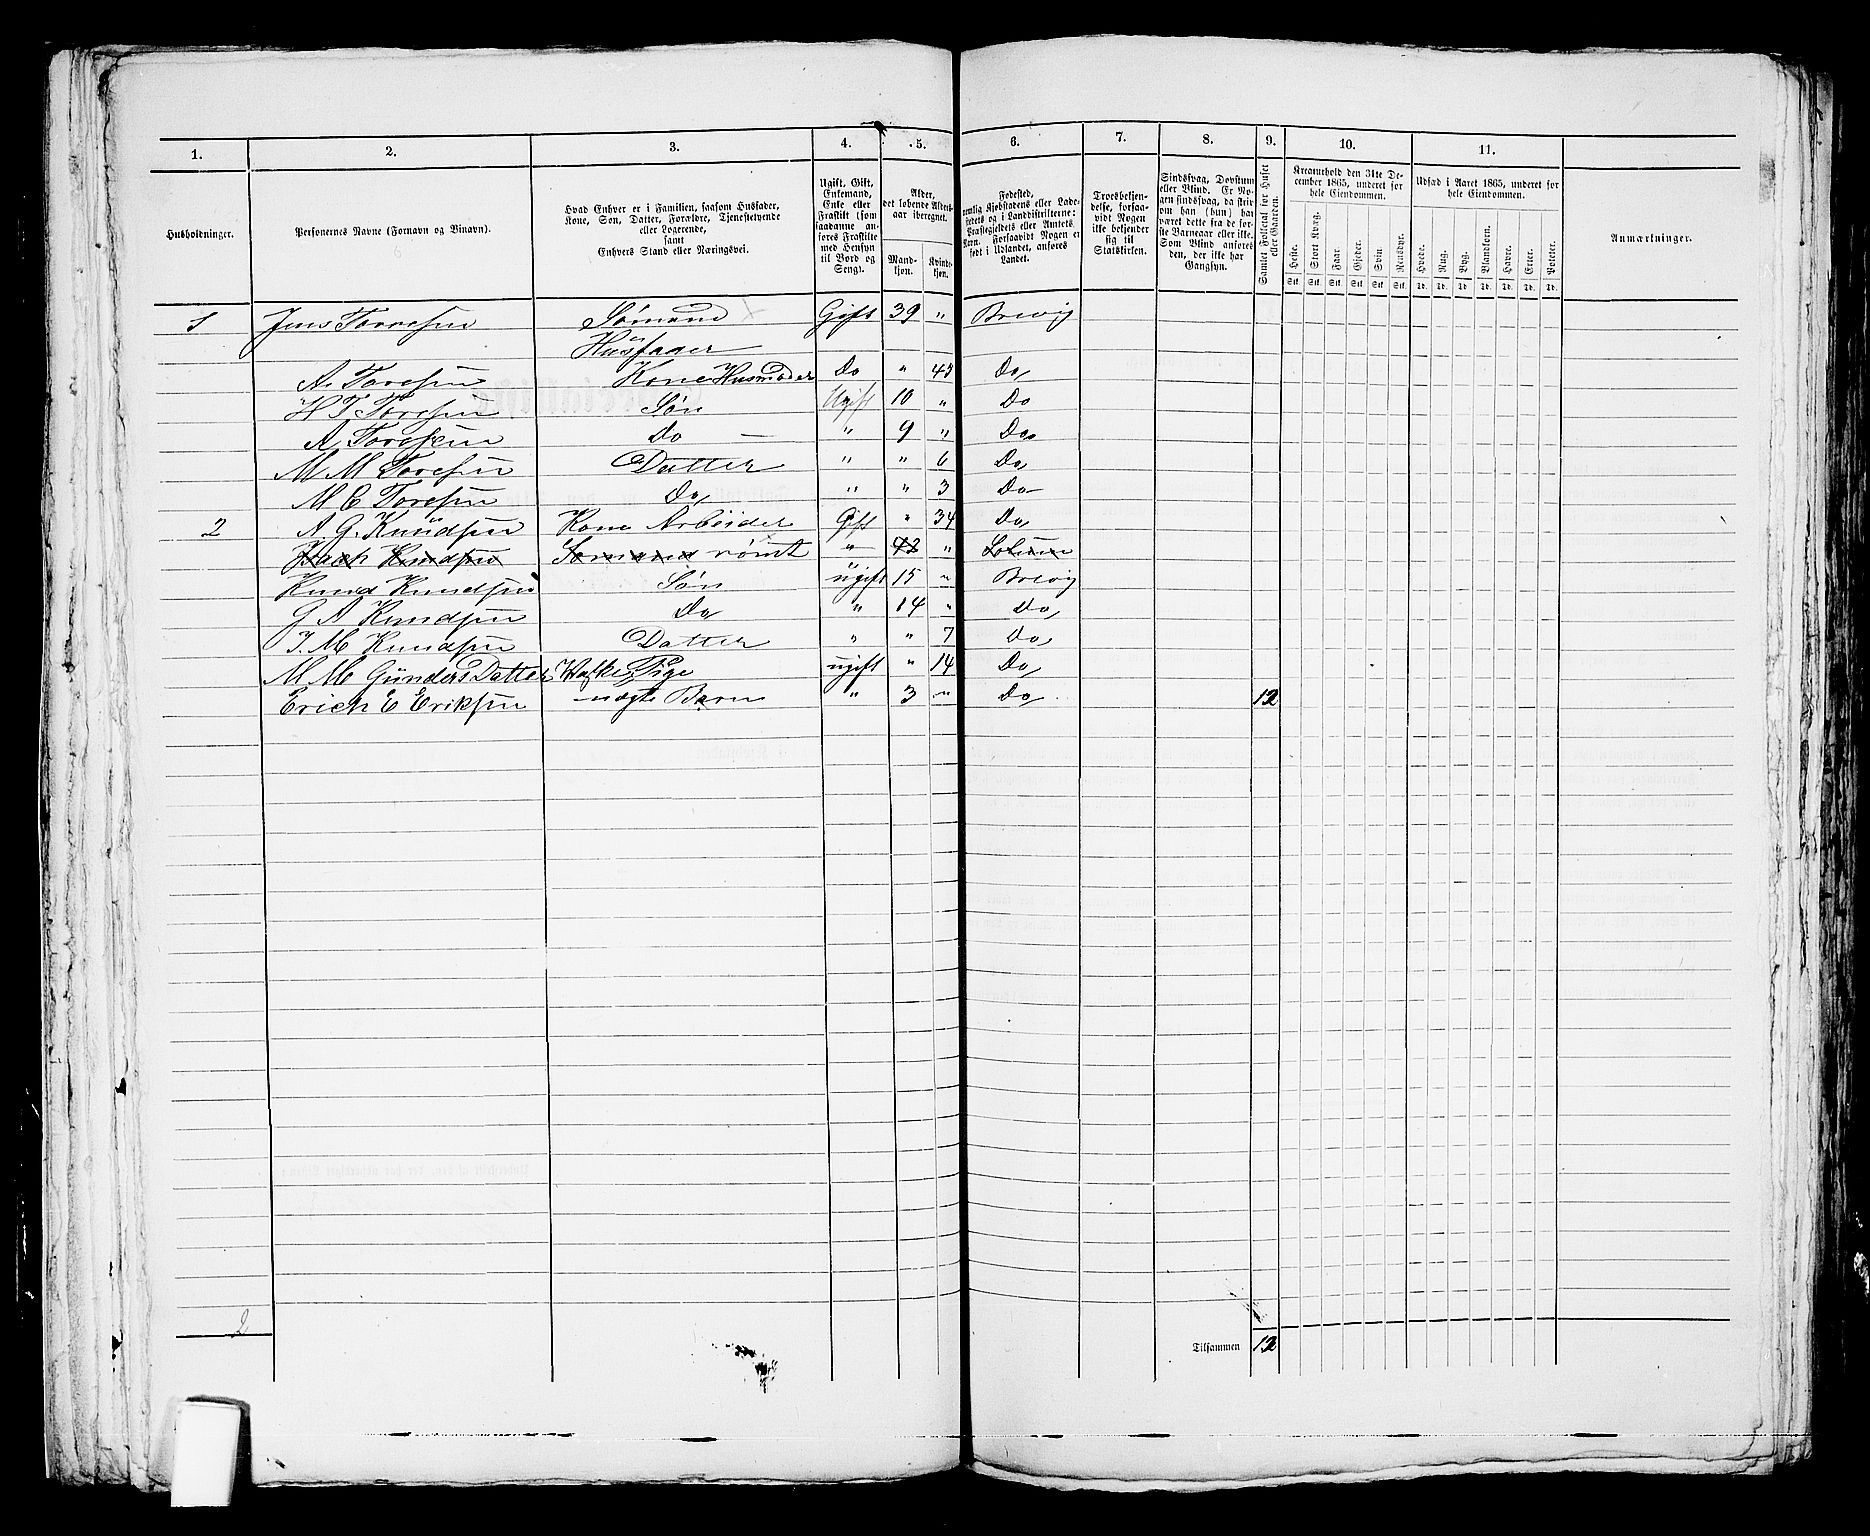 1. 2. 3. 4. 5. 6. 7. 8. 9. 10. 11.
Husholdninger.
Personernes Navne (Fornavn og Binavn).
Hvad Enhver er i Familien, saasom Husfader,
Kone, Søn, Datter, Forældre, Tjenestetyende
eller Logerende,
samt
Enhvers Stand eller Næringsvei.
Ugift, Gift,
Enkemand,
Enke eller
Fraskilt (som
saadanne an-
føres Fraskilte
med Hensyn
til Bord og
Seng).
Alder,
det løbende Alders-
aar iberegnet.
Mand-
kjøn.
Kvind-
kjøn.
Fødested,
nemlig Kjøbstadens eller Lade-
stedets og i Landdistrikterne:
Præstegjeldets eller Amtets
Navn. Forsaavidt Nogen er
født i Udlandet, anføres
Landet.
Troesbekjen-
delse, forsaa-
vidt Nogen
ikke bekjender
sig til
Statskirken.
Sindssvag, Døvstum
eller Blind. Er No-
gen sindssvag, da skri-
ves om han (hun) har
været dette fra de før-
ste Barneaar eller ikke.
Som Blind anføres
den, der ikke har
Gangsyn.
Samlet Folketal for Huset
eller Gaarden.
Kreaturhold den 31te De-
cember 1865, underet for
hele Eiendommen.
Heste. Stort Kvæg. Faar. Gjeder. Svin. Rensdyr.
Stk. Stk. Stk. Stk. Stk. Stk.
Udsæd i Aaret 1865, underet for
hele Eiendommen.
Hvede. Rug. Byg. Blandkorn. Havre. Erter. Poteter.
Td. Td. Td. Td. Td. Td. Td.
Anmærkninger.
1 Jens Torresen Sømand Gift 39 " Brevig
Husfader
A. Toresen Kone Husmoder Do " 43 Do
H T Toresen Søn Ugift 10 " Do
A Toresen Do — " 9 " Do
M M Toresen Datter " " 6 Do
M C Toresen Do " " 3 Do
2 A. G. Knudsen Kone Arbeider Gift " 34 Do
Knudsen Sømand rømt " 42 "
Knud Knudsen Søn ugift 15 " Brevig
G A Knudsen Do " 14 " Do
J. M Knudsen Datter " " 7 Do
M M Gunders Datter Pige ugift " 14 Do
Erich E Eriksen uægte Barn " 3 " Do 12
2
Tilsammen 12